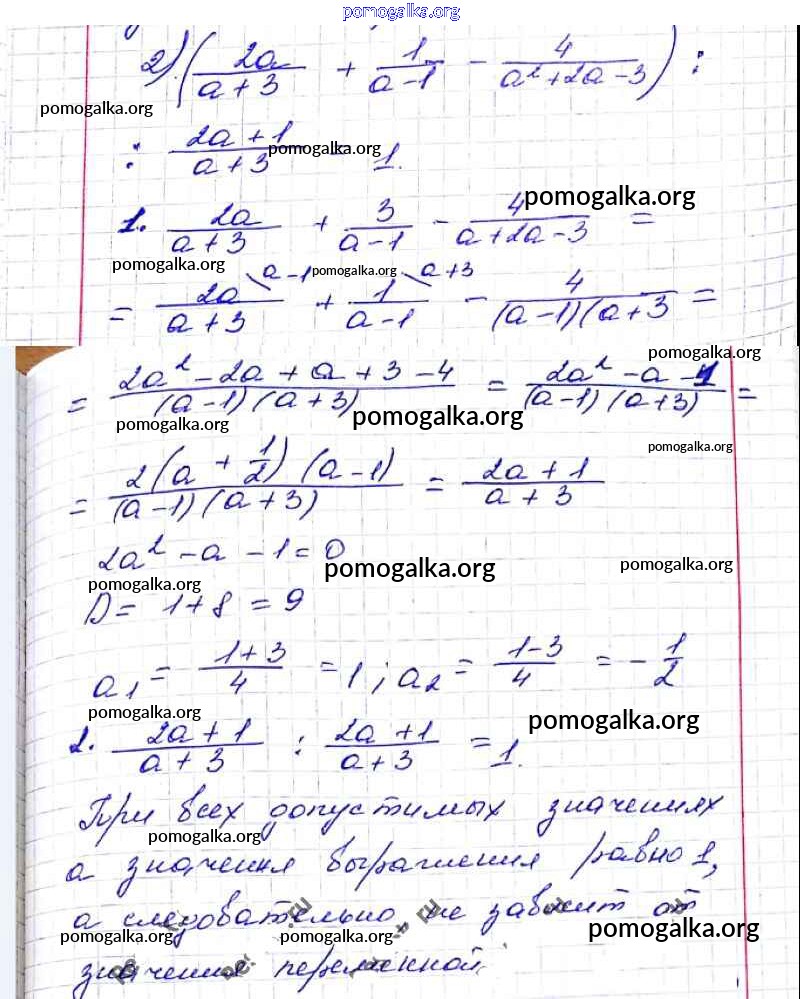 pomogalka.org
2) (2a/(a+3) + 1/(a-1) - 4/(a²+2a-3)) :
pomogalka.org
: (2a+1)/(a+3) = 1.
pomogalka.org
pomogalka.org
1. 2a/(a+3) + 3/(a-1) - 4/(a+2a-3) =
pomogalka.org pomogalka.org
= 2a/(a+3) \a-1 + 1/(a-1) \a+3 - 4/((a-1)(a+3) =
pomogalka.org
= (2a²-2a+a+3-4)/((a-1)(a+3)) = (2a²-a-1)/((a-1)(a+3)) =
pomogalka.org pomogalka.org
pomogalka.org
= 2(a+1/2)(a-1)/((a-1)(a+3)) = (2a+1)/(a+3)
2a²-a-1=0
pomogalka.org pomogalka.org pomogalka.org
D=1+8=9
a₁ = (1+3)/4 = 1; a₂ = (1-3)/4 = -1/2
pomogalka.org pomogalka.org
2. (2a+1)/(a+3) : (2a+1)/(a+3) = 1.
При всех допустимых значениях
pomogalka.org
а значения выражения равно 1,
а следовательно не зависит от
pomogalka.org pomogalka.org pomogalka.org
значения переменной.